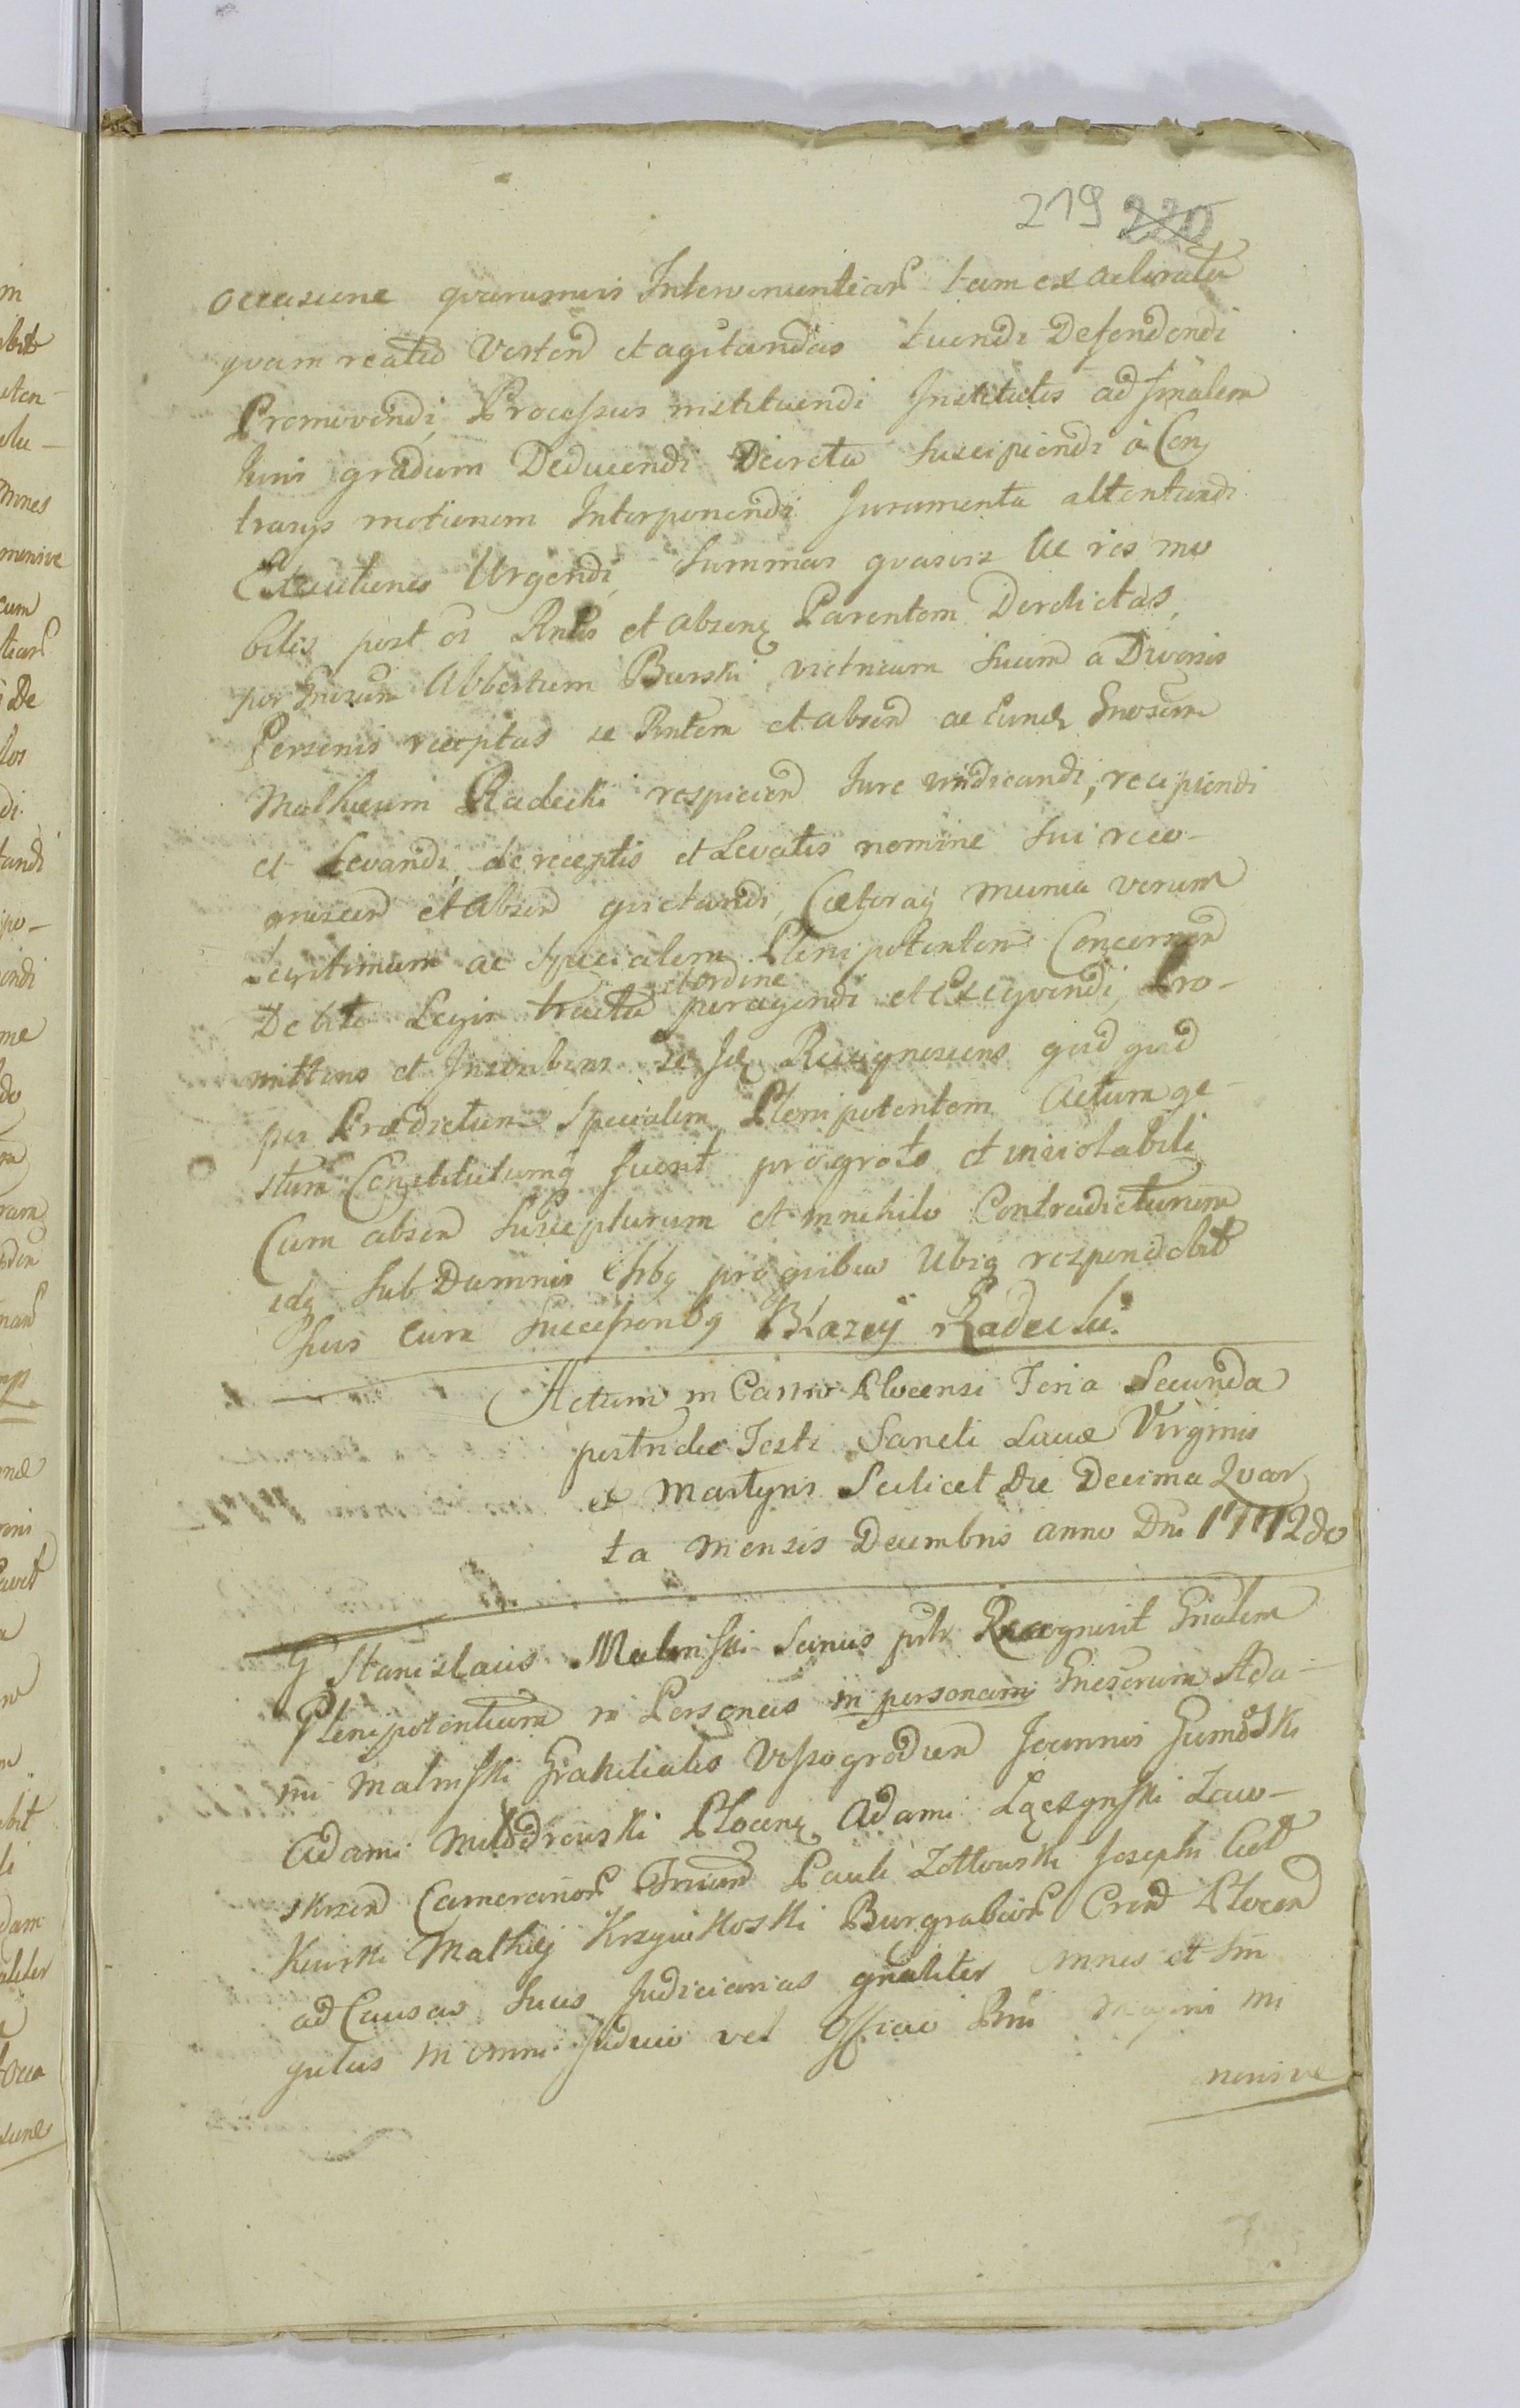 219 220
occasione quarumvis Intervenientiar tam ex actoratu
quam reatu Verten et agitandas tuendi Defendendi
Promovendi, Processus instituendi Institutis ad finalem
Juris gradum Deducendi Decreta Suscipiendi à Con
trarys motionem Interponendi Juramenta attentandi
Executiones Urgendi, Summas quasvis ac res mo
biles post Rntis et absenq Parentem Derelictas,
per Gnosum Albertum Burski vitricum Suum a Diversis
Personis receptas se Rntem et absen ac Eund Gnosum
Mathæum Radecki respicien Jure vindicandi, recipiendi
et Levandi, de receptis et Levatis nomine Sui reco-
gnoscen et Absen quietandi, Cæteraq munia verum
Legitimum ac Specialem Plenipotentem Concernen
et ordine
Debito Legis tractu peragendi et Exeqvendi, Pro-
mittens et Inscribens se Recognoscens quid quid
per Prædictum Specialem Plenipotentem Actum ge-
stum Constitutumq fuerit pro grato et inviolabili
Cum absen Suscepturum et in nihilo Contradicturum
idq Sub Damnis pro quibus Ubiq respondebit
Suis cum Successoribq Błazey Radecki.
Actum in Castro Plocensi Feria Secunda
postridie Festi Sancti Luciæ Virginis
et Martyris Scilicet Die Decima Quar
ta Mensis Decembris anno Dni 1772do
G Stanislaus Malniski Sanus Recognovit Gnalem
Plenipotentiam in Personas in personam Gnosorum Ada-
mi Malniski Wyszogrodien Joannis Gumoski
Adami Modrowski Plocenq Adami Lęczynski Zaw-
skrzen Camerarior Pauli Zottowski Josephi
Mathiej Krzywkoski Burgrabior Cren Plocen
ad Causas Suas Judiciarias gnaliter omnes et Sin
gulas in omni Judicio vel Officio Rni
nensive